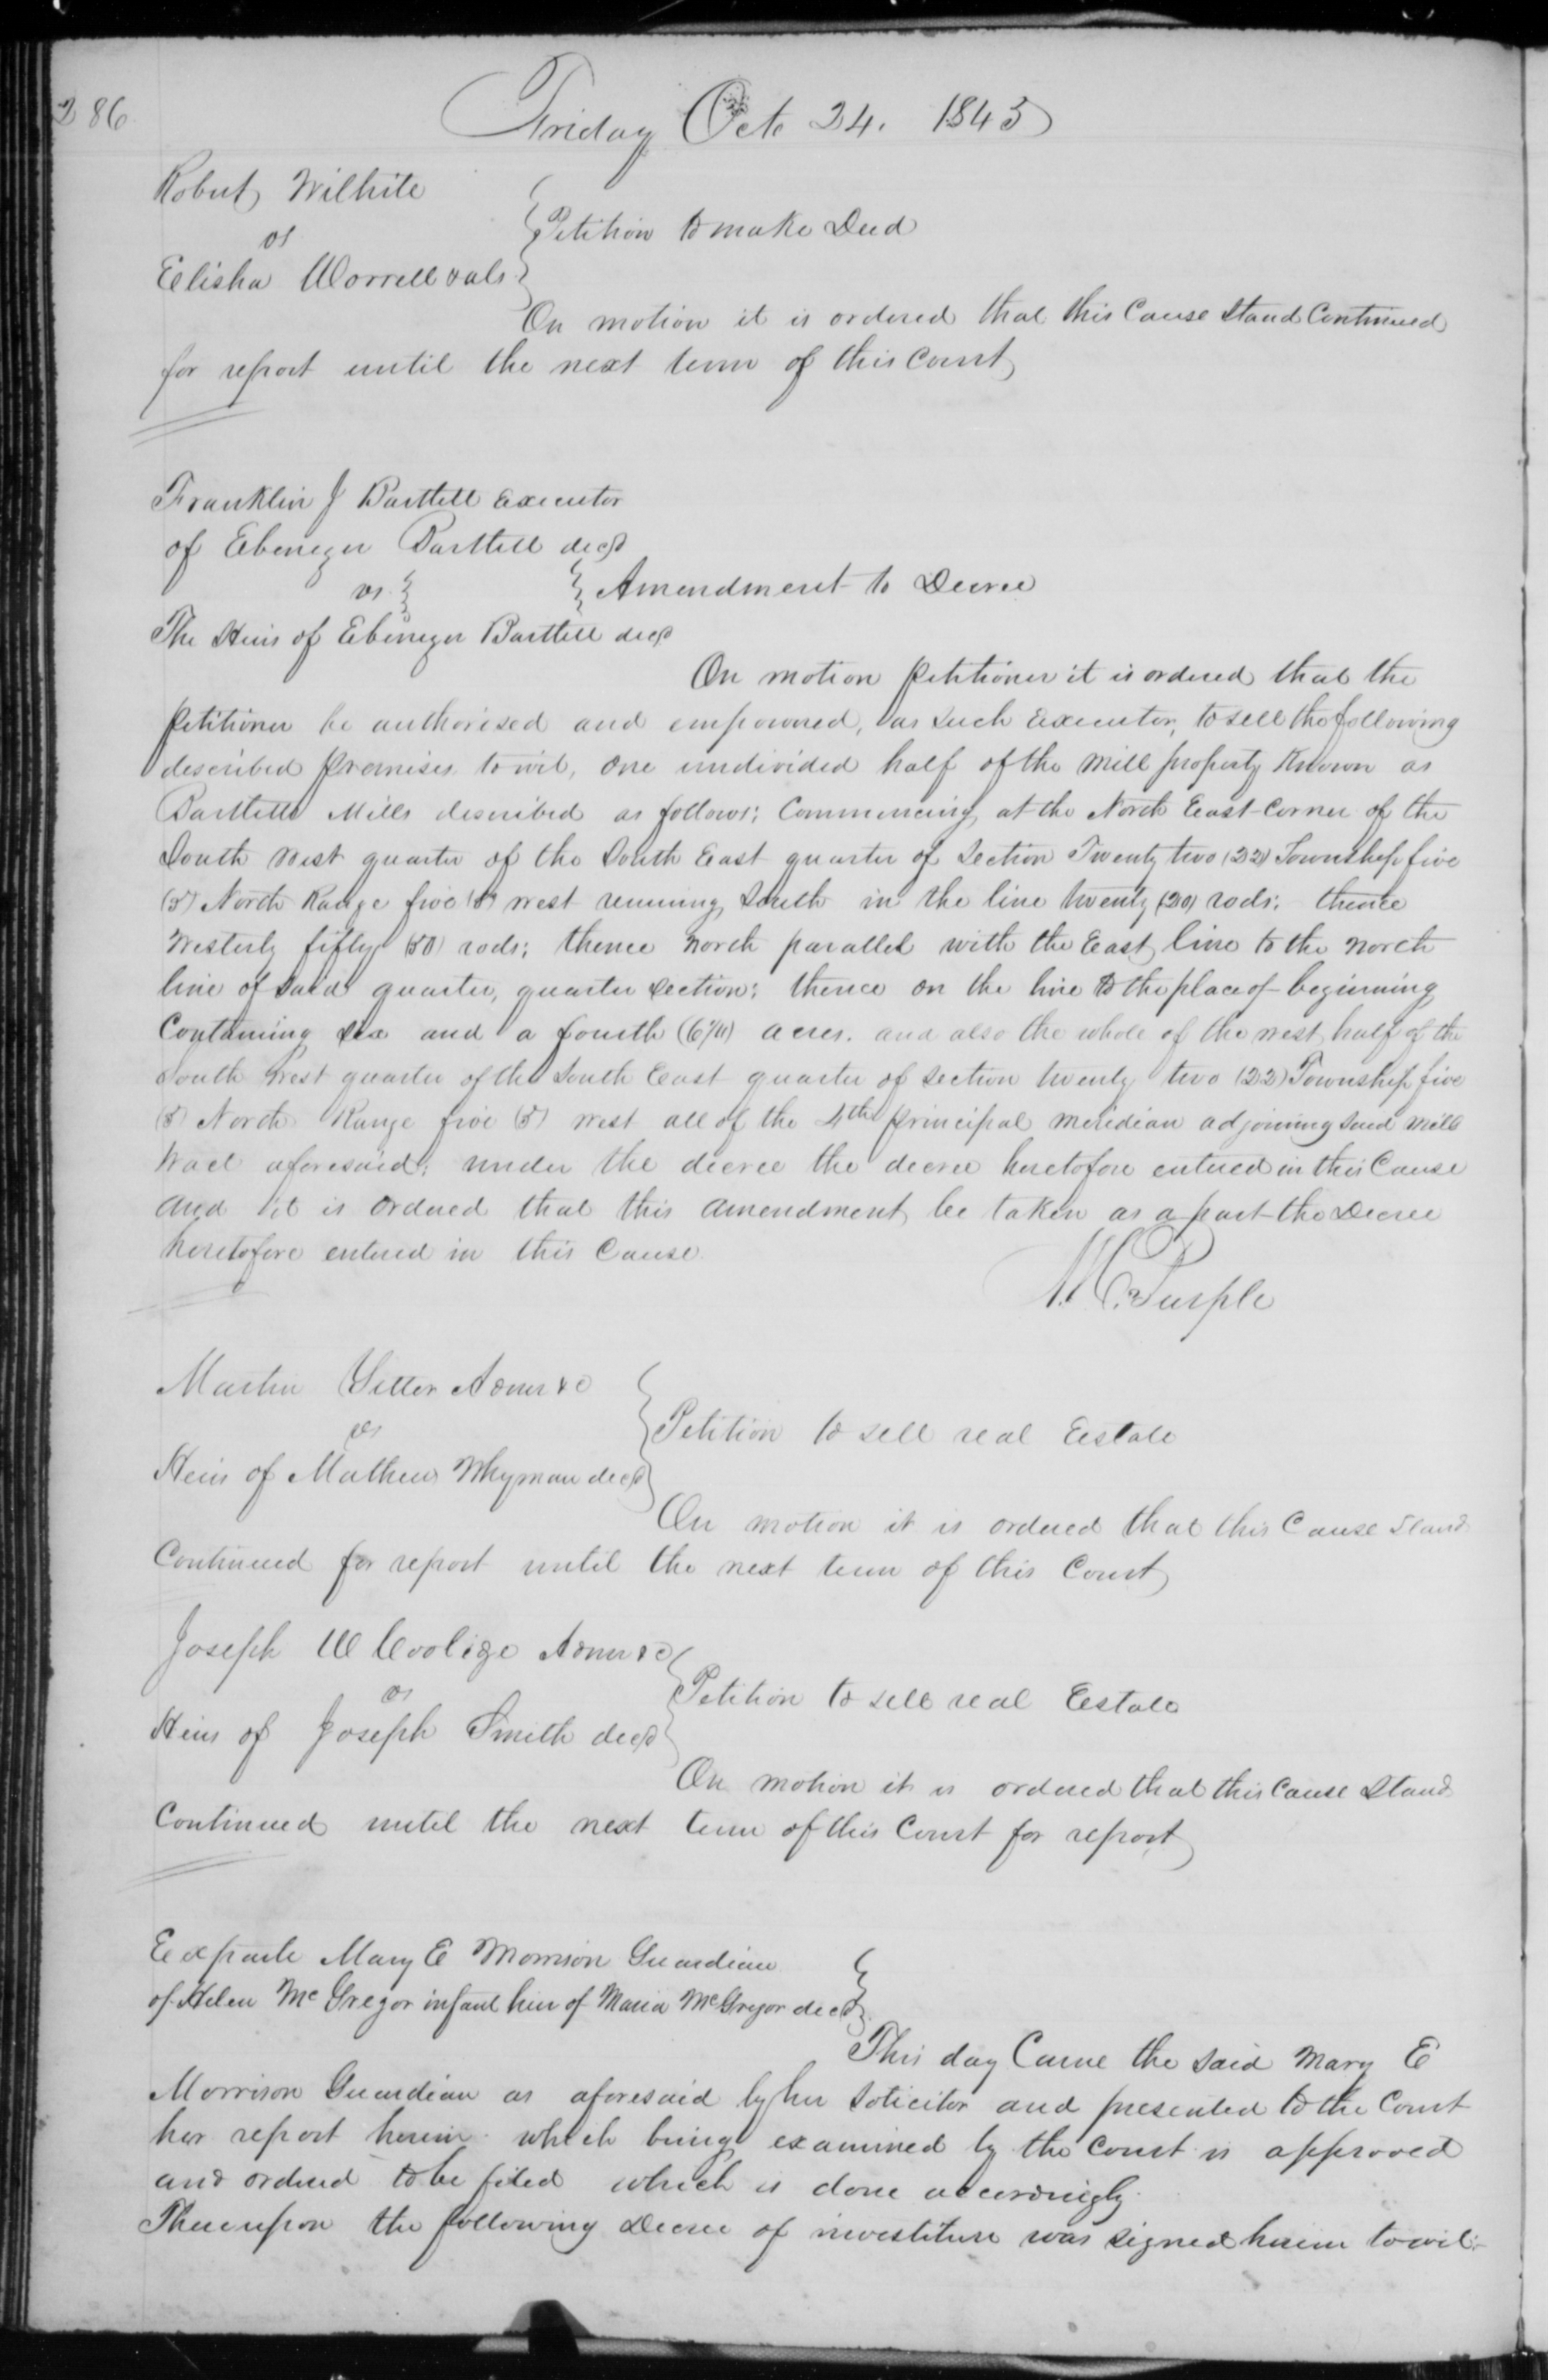 286
Friday Oct 24. 1845
Robert Wilhite
vs
Elisha Worrell & als
Petition to make Deed
On motion it is ordered that this Cause Stand Continued
for report until the next term of this Court
Franklin J Barttell Executor
of Ebenezer Barttell decd
vs
Amendment to Decree
The Heirs of Ebenezer Barttell decd
On motion petitioner it is ordered that the
petitioner be authorised and empowered, as such Executor, to sell the following
described premises towit, one undivided half of the mill property Known as
Barttells Mills described as follows; Commencing at the North East Corner of the
South West quarter of the South East quarter of Section Twenty two (22) Township five
(5) North Range five (5) west running South in the line twenty (20) rods; thence
Westerly fifty (50) rods; thence North parallel with the East line to the north
line of said quarter, quarter section; thence on the line to the place of beginning
Containing six and a fourth (6 1/4) acres. and also the whole of the west half of the
South West quarter of the South East quarter of section twenty two (22) Township five
(5) North Range five (5) west all of the 4th principal meridian adjoining said mill
tract aforesaid; under the decree the decree heretofore entered in this Cause
and it is ordered that this amendment be taken as a part the Decree
heretofore entered in this Cause.
N. C. Purple
Martin Admr &c
vs
Heirs of Mathew Whyman decd
Petition to sell real Eestate
On motion it is ordered that this Cause Stand
Continued for report until the next term of this Court
Joseph W Coolige Admr &c
vs
Heirs of Joseph Smith decd
Petition to sell real Eestate
On motion it is ordered that this Cause Stand
Continued until the next term of this Court for report
Exparte Mary E Morrison Guardian
of Helen McGregor infant heir of Maria McGregor decd
This day Came the said Mary E
Morrison Guardian as aforesaid by her Solicitor and presented to the Court
her report herein which being examined by the Court is approved
and ordered to be filed which is done accordingly.
Thereupon the following Decree of investiture was signed herein towit:-